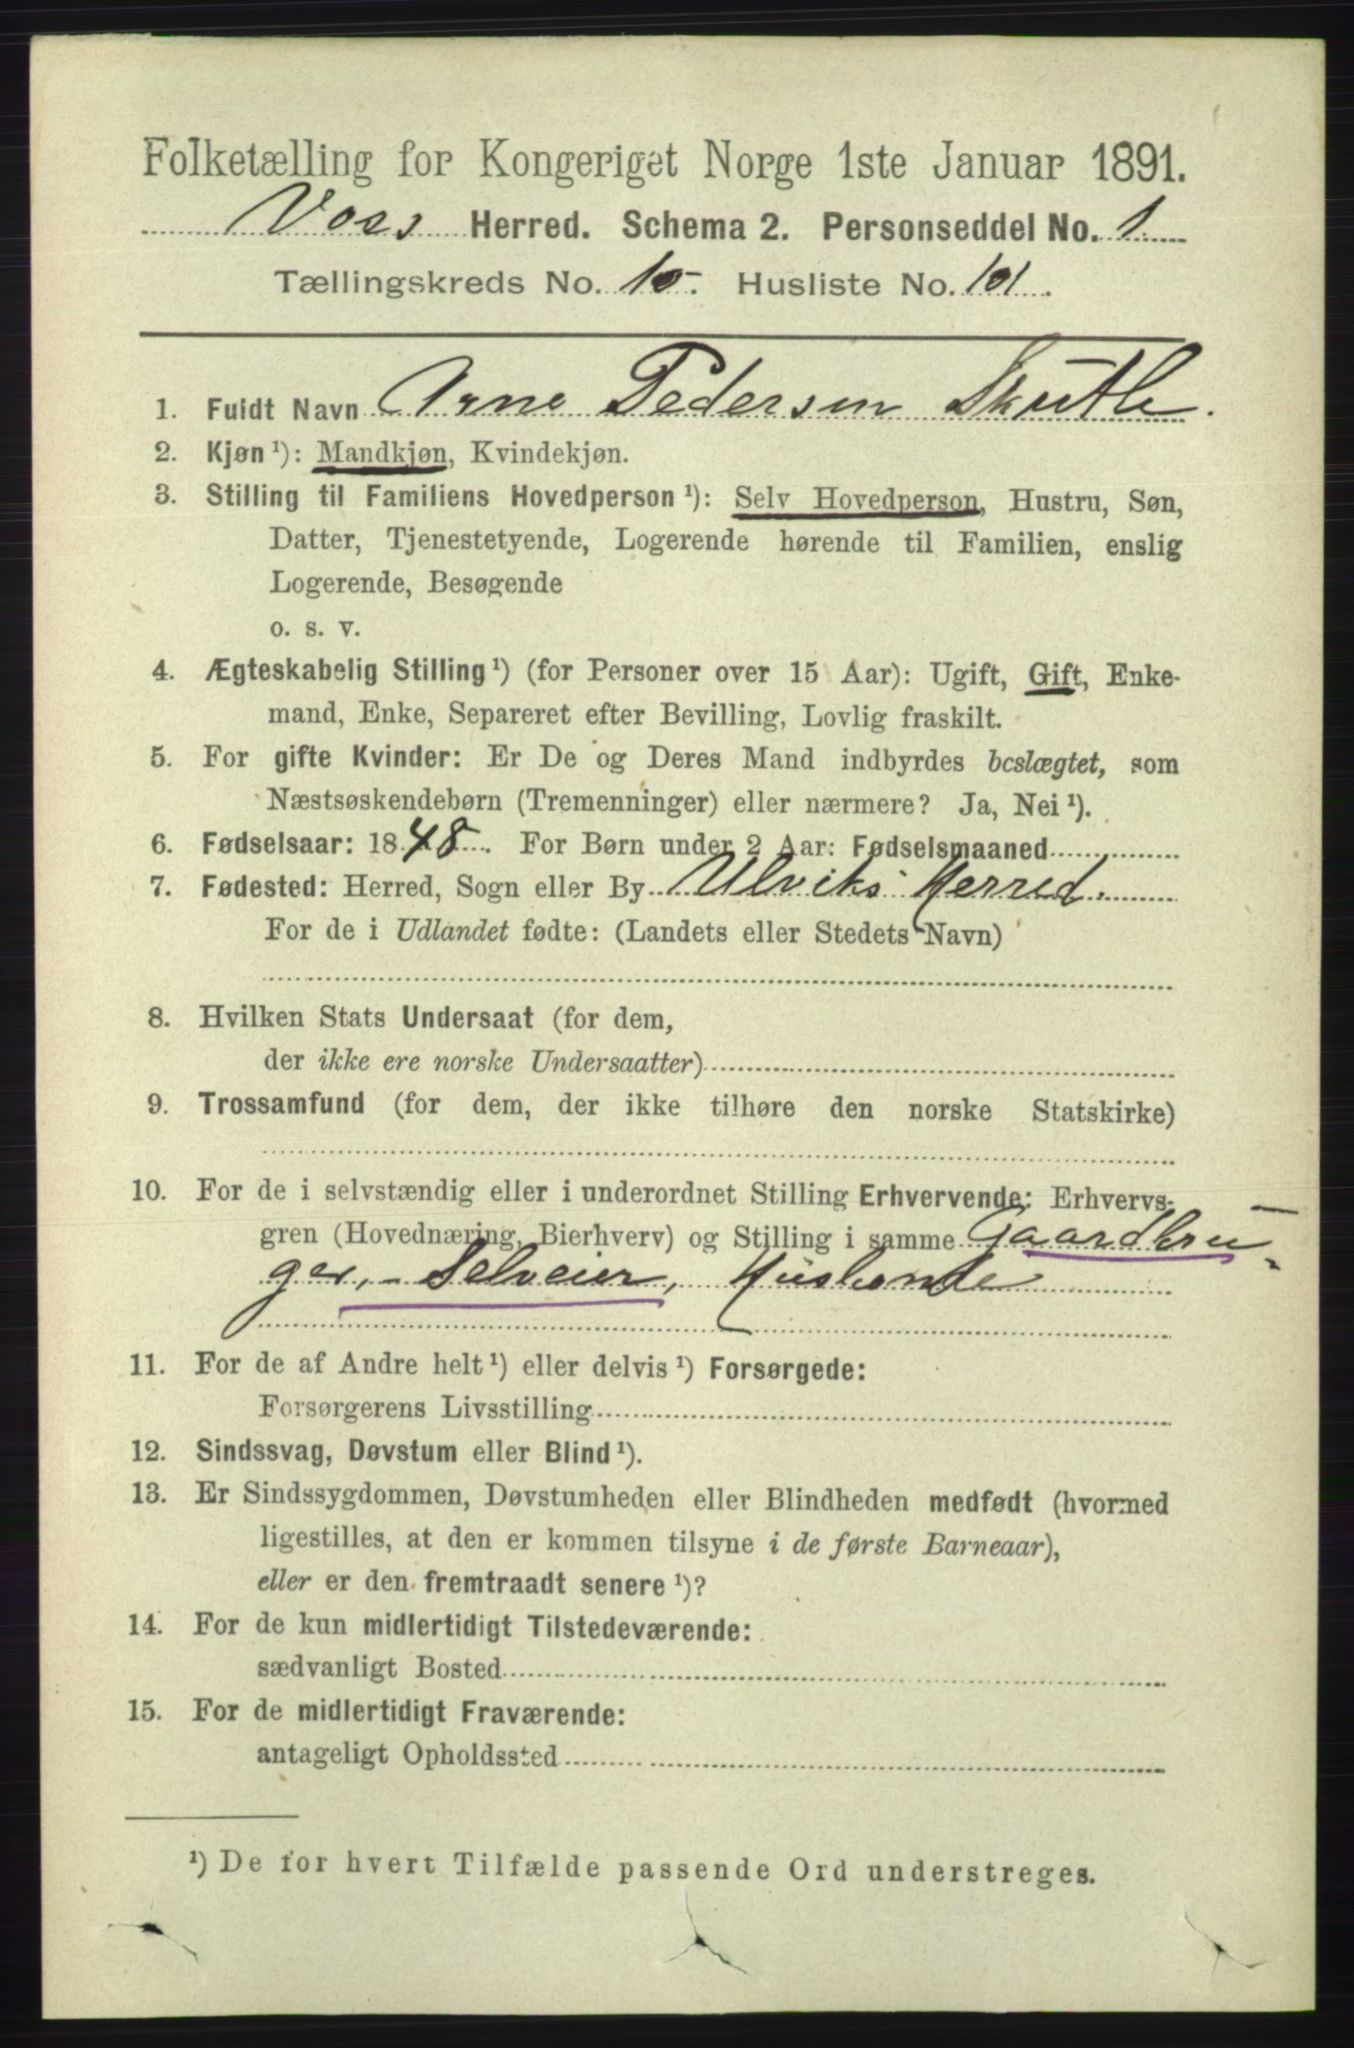 Folketælling for Kongeriget Norge 1ste Januar 1891.
Voss Herred. Schema 2. Personseddel No. 1
Tællingskreds No. 10. Husliste No. 101.
1. Fuldt Navn Arne Pedersen Skutle.
2. Kjøn ¹): Mandkjøn, Kvindekjøn.
3. Stilling til Familiens Hovedperson ¹): Selv Hovedperson, Hustru, Søn,
Datter, Tjenestetyende, Logerende hørende til Familien, enslig
Logerende, Besøgende
o. s. v.
4. Ægteskabelig Stilling ¹) (for Personer over 15 Aar): Ugift, Gift, Enke-
mand, Enke, Separeret efter Bevilling, Lovlig fraskilt.
5. For gifte Kvinder: Er De og Deres Mand indbyrdes beslægtet, som
Næstsøskendebørn (Tremenninger) eller nærmere? Ja, Nei ¹).
6. Fødselsaar: 1848. For Børn under 2 Aar: Fødselsmaaned
7. Fødested: Herred, Sogn eller By Ulviks Herred.
For de i Udlandet fødte: (Landets eller Stedets Navn)
8. Hvilken Stats Undersaat (for dem,
der ikke ere norske Undersaatter)
9. Trossamfund (for dem, der ikke tilhøre den norske Statskirke)
10. For de i selvstændig eller i underordnet Stilling Erhvervende: Erhvervs-
gren (Hovednæring, Bierhverv) og Stilling i samme Gaardbru-
ger, - Selveier, Husbonde
11. For de af Andre helt ¹) eller delvis ¹) Forsørgede:
Forsørgerens Livsstilling
12. Sindssvag, Døvstum eller Blind ¹).
13. Er Sindssygdommen, Døvstumheden eller Blindheden medfødt (hvormed
ligestilles, at den er kommen tilsyne i de første Barneaar),
eller er den fremtraadt senere ¹)?
14. For de kun midlertidigt Tilstedeværende:
sædvanligt Bosted
15. For de midlertidigt Fraværende:
antageligt Opholdssted
¹) De for hvert Tilfælde passende Ord understreges.